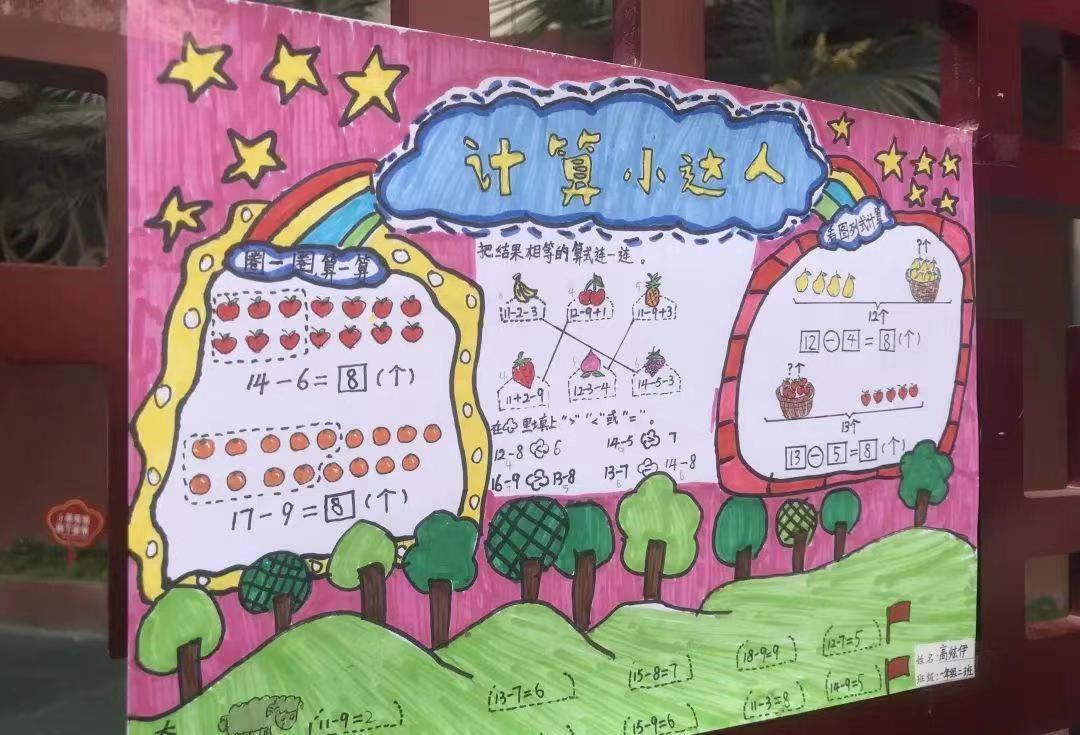 计算小达人
圈一圈算一算
14-6=8(个)
17-9=8(个)
把结果相等的算式连一连。
11-2-3
12-9+1
11-9+3
11+2-9
12-3-4
14-5-3
在 里填上">""<"或"="。
12-8 < 6
14-5 > 7
16-9 > 13-8
13-7 = 14-8
看图列式计算
?个
12个
12-4=8(个)
?个
13个
13-5=8(个)
11-9=2
13-7=6
15-8=7
15-9=6
18-9=9
11-3=8
12-7=5
14-9=5
姓名:高炫伊
班级:一年级二班